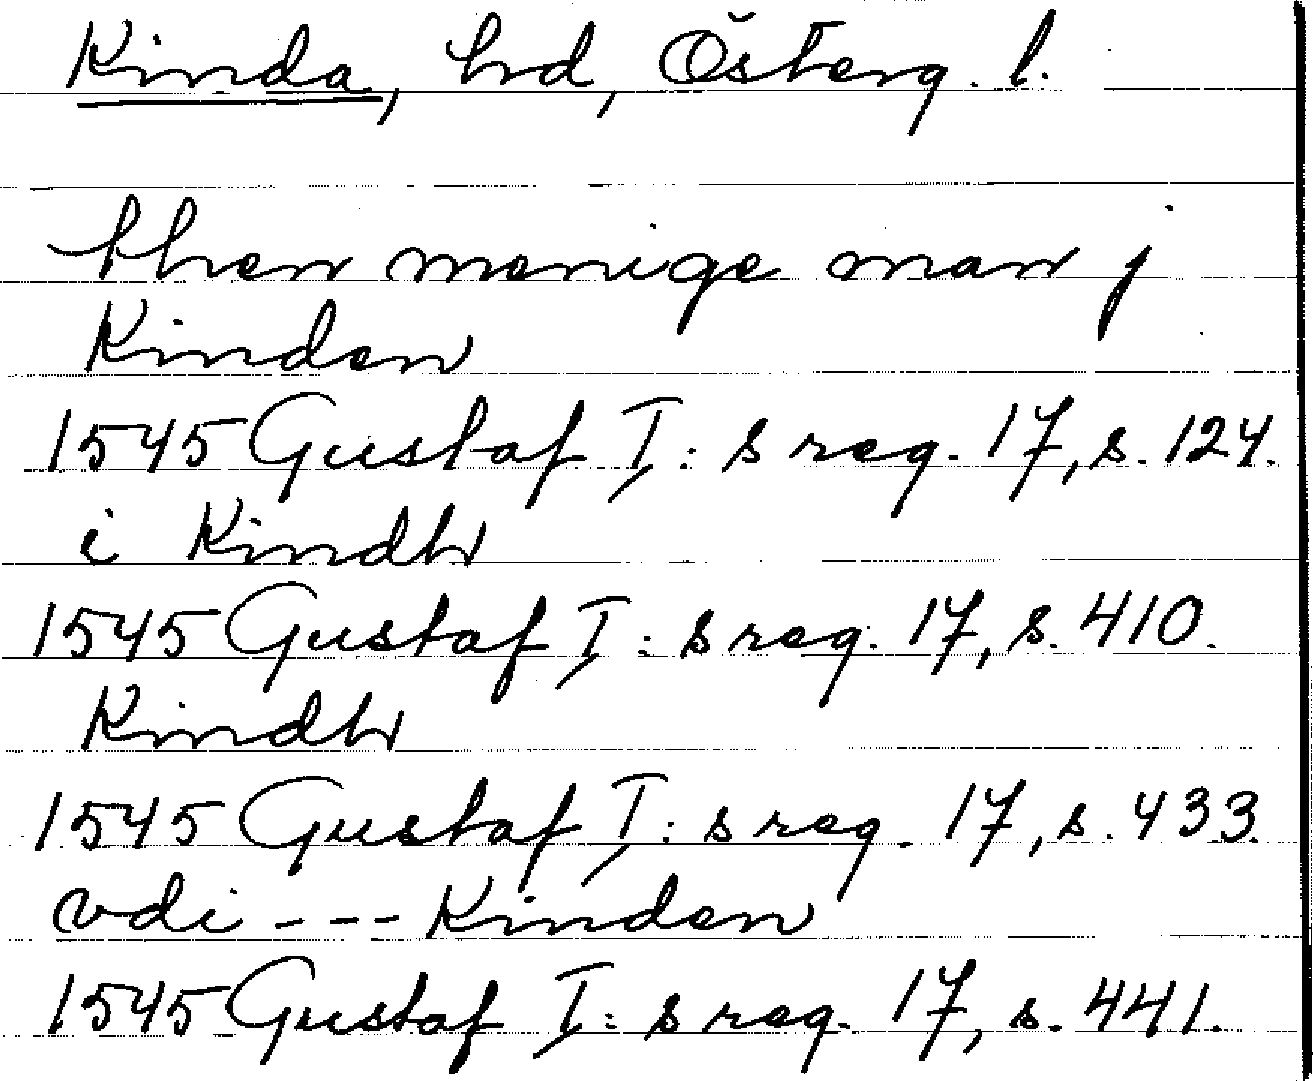 Kinda, hd, Österg. l.
then menige man j
Kinden
1545 Gustaf I: s reg. 17, s. 124.
i Kindh
1545 Gustaf I: s reg. 17, s. 410.
Kindh
1545 Gustaf I: s reg. 17, s. 433.
vdi --- Kinden
1545 Gustaf I: s reg. 17, s. 441.